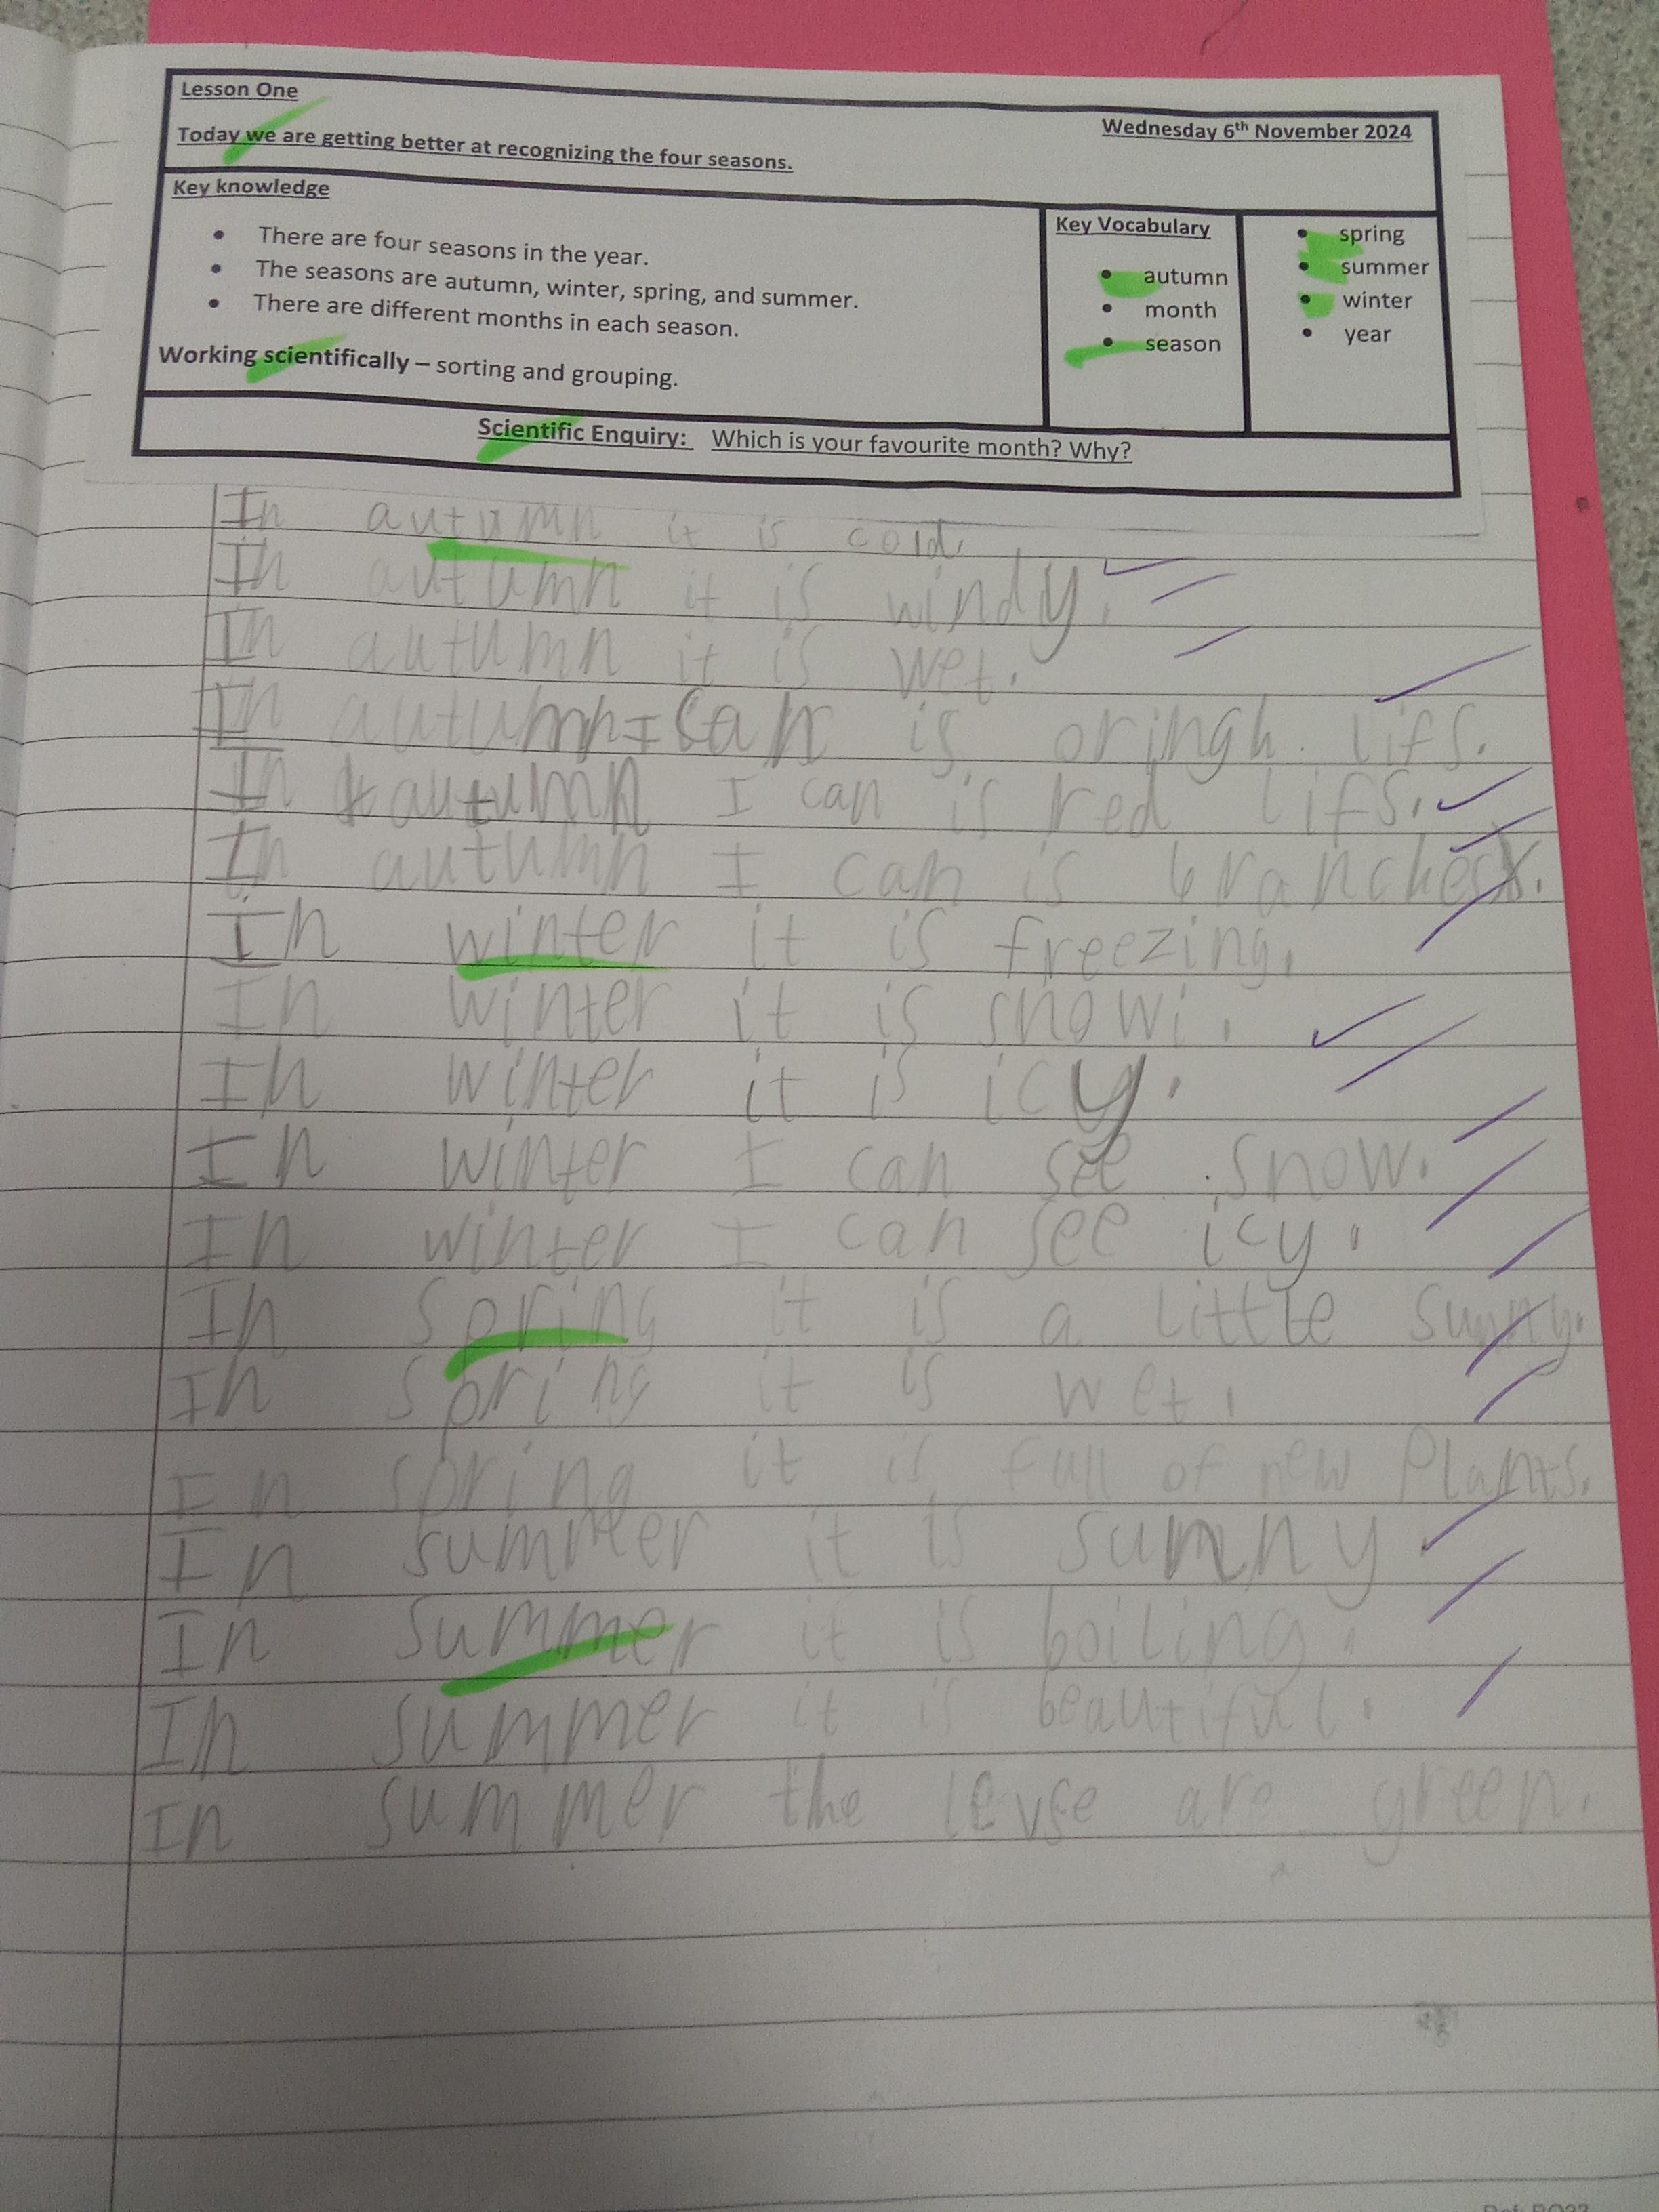 Lesson One
Wednesday 6th November 2024
Today we are getting better at recognizing the four seasons.
Key knowledge
• There are four seasons in the year.
• The seasons are autumn, winter, spring, and summer.
• There are different months in each season.
Working scientifically – sorting and grouping.
Key Vocabulary
• autumn
• month
• season
• spring
• summer
• winter
• year
Scientific Enquiry: Which is your favourite month? Why?
In autumn it is cold.
In autumn it is windy.
In autumn it is wet.
In autumn I can is oringh lifs.
In autumn I can is red lifs.
In autumn I can is branches.
In winter it is freezing.
In winter it is snowi.
In winter it is icy.
In winter I can see snow.
In winter I can see icy.
In spring it is a little sunny.
In spring it is wet.
In spring it is full of new plants.
In summer it is sunny
In summer it is boiling.
In summer it is beautiful.
In summer the levse are green.